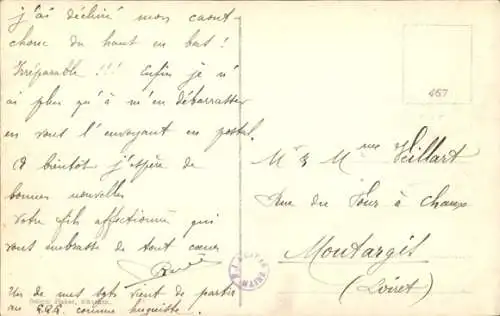 j'ai déchiré mon caout-
chouc du haut en bas !
Irréparable !!! Enfin je n'
ai plus qu'à m'en débarrasser
en vous l'envoyant en postal.
A bientôt j'espère de
bonnes nouvelles
Votre fils affectionné qui
vous embrasse de tout coeur
Un de mes sgts vient de partir
au comme linguiste.
467
Mr & Mme Veillart
Rue du Four à Chaux
Montargis
(Loiret)